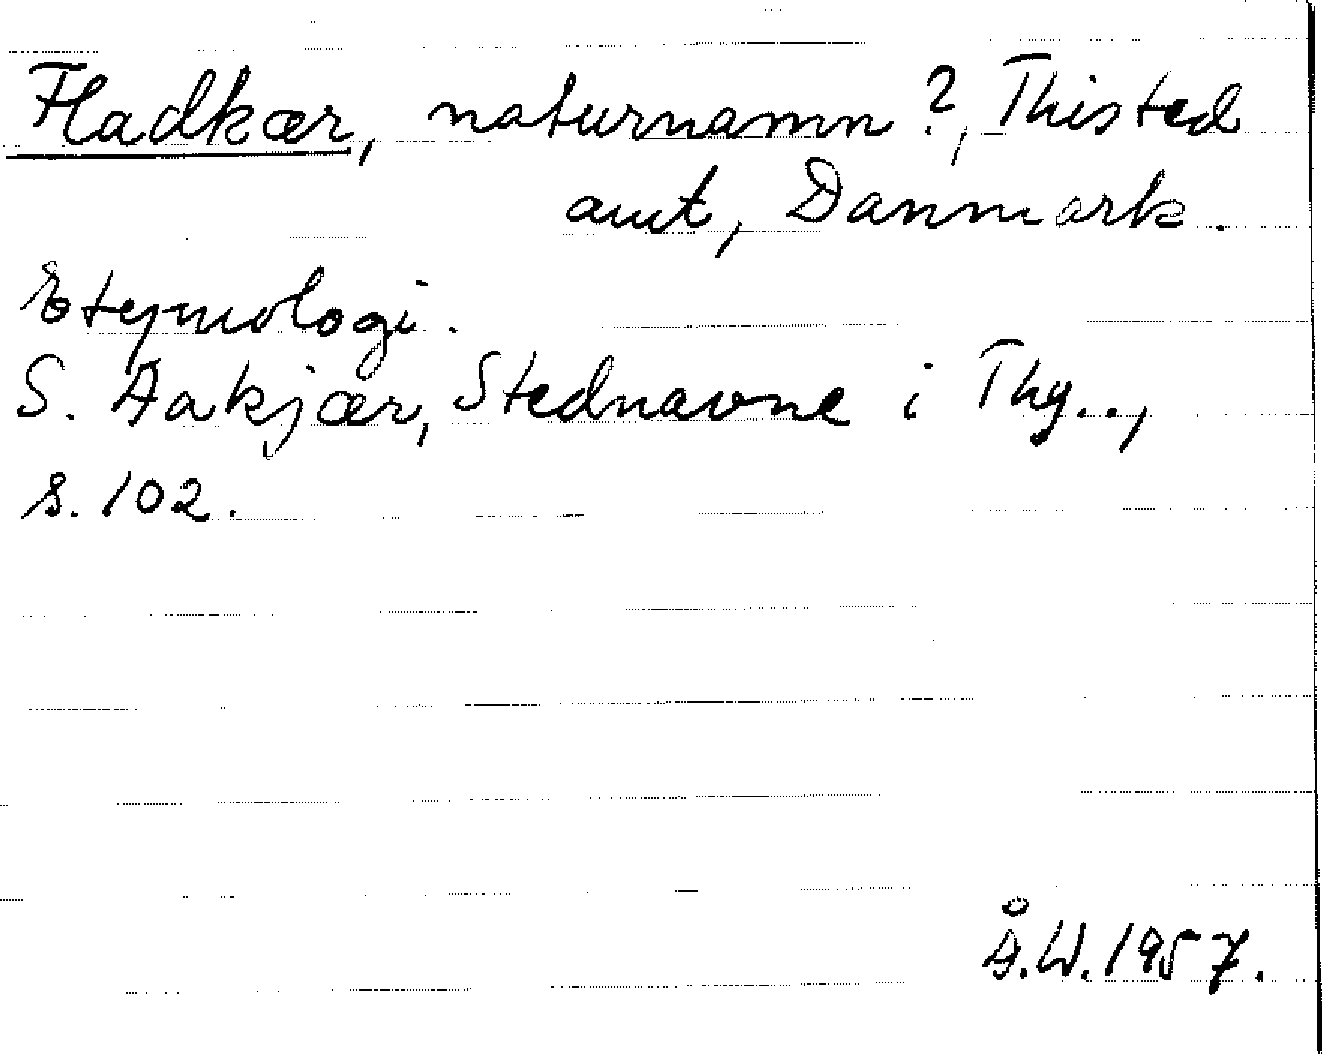 Fladkær, naturnamn?, Thisted
amt, Danmark.
Etymologi.
S. Aakjær, Stednavne i Thy..,
s. 102.
Å.W. 1957.